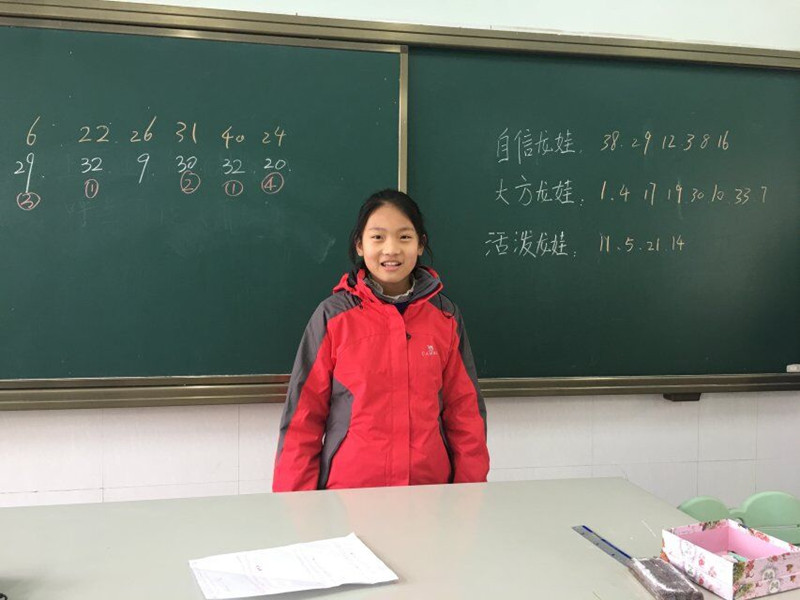 6 22 26 31 40 24
29 32 9 30 32 20
③ ① ② ① ④
自信龙娃: 38. 29 12 3 8 16
大方龙娃: 1. 4 17 19 30 10. 33. 7
活泼龙娃: 11. 5. 21. 14